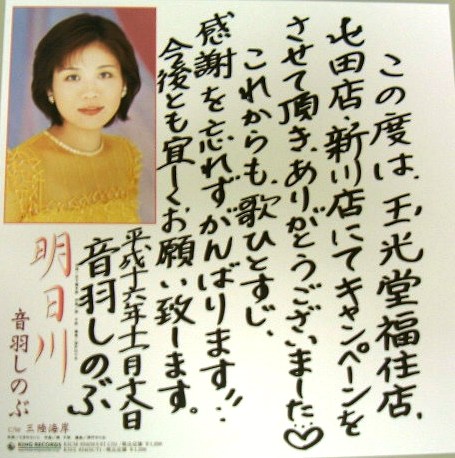 この度は、玉光堂福住店、
屯田店・新川店にてキャンペーンを
させて頂き、ありがとうございました♡
これからも、歌ひとすじ、
感謝を忘れずがんばります!!
今後とも宜しくお願い致します。
平成十六年十一月十八日
音羽しのぶ
明日川
音羽しのぶ
C/W 三陸海岸
KING RECORDS